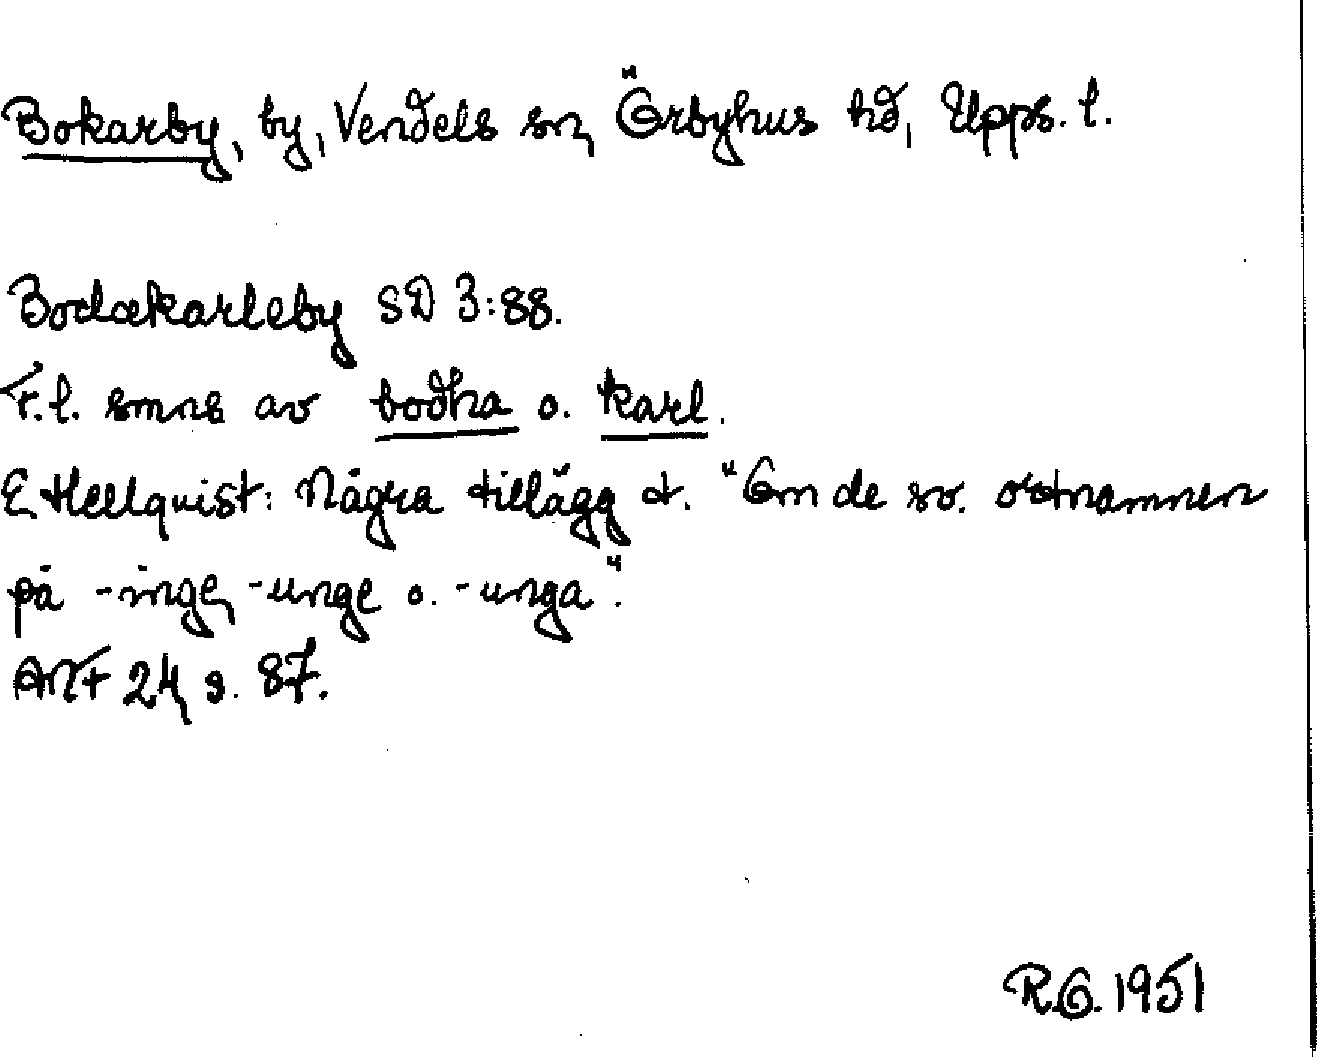 Bokarby, by, Vendels sn, Örbyhus hd, Upps. l.
Bodakarleby SD 3:88.
F.l. smns av bodha o. karl.
E Hellquist: Några tillägg t. "Om de sv. ortnamnen
på -inge, -unge o. -unga".
ANF 24, s. 87.
R.O. 1951